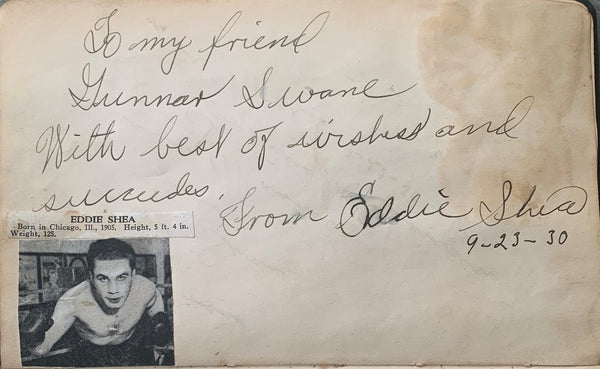 To my friend
Gunnar Swane
With best of wishes and
succedes
From Eddie Shea
9-23-30
EDDIE SHEA
Born in Chicago, Ill., 1905. Height, 5 ft. 4 in.
Weight, 125.